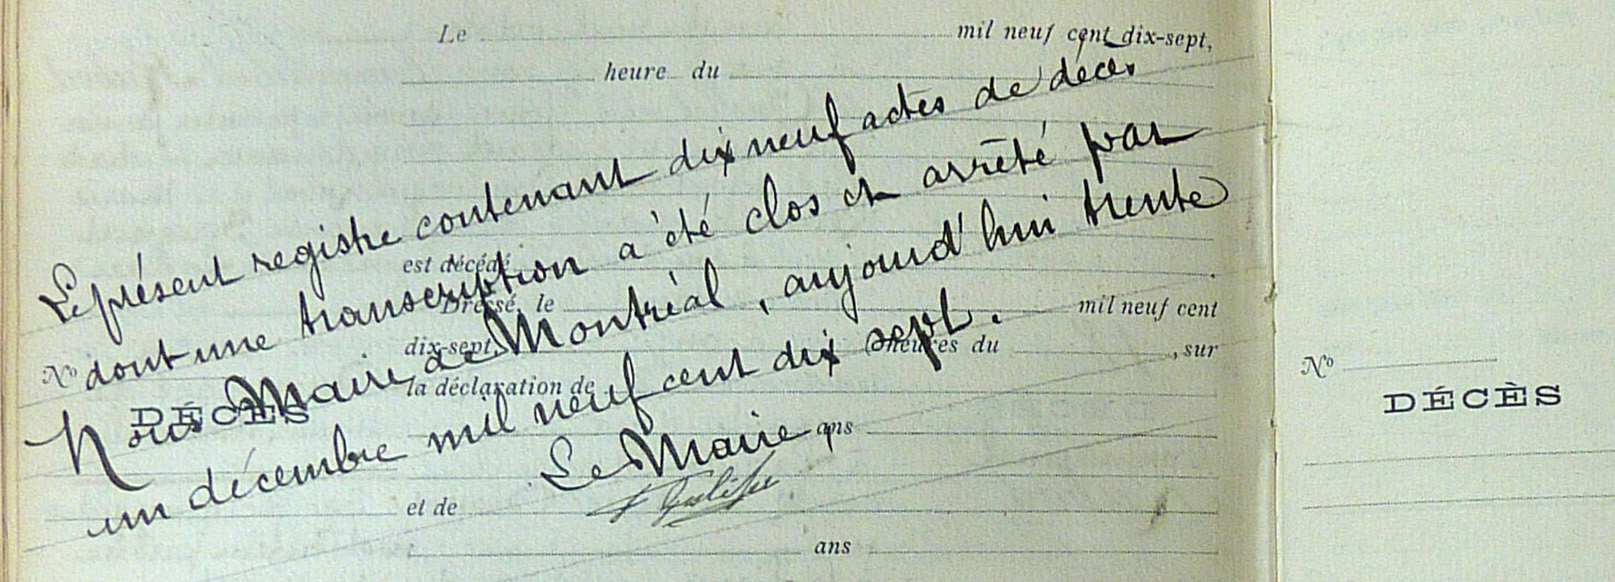 Le mil neuf cent dix-sept,
heure du
Le présent registre contenant dix neuf actes de décès
dont une transcription a été clos et arrêté par
Nous Maire de Montréal, aujourd'hui trente
un décembre mil neuf cent dix sept.
Le Maire,
est décédé
Dressé, le mil neuf cent
dix-sept, heures du , sur
la déclaration de
ans
et de
ans
No
DÉCÈS
No
DÉCÈS